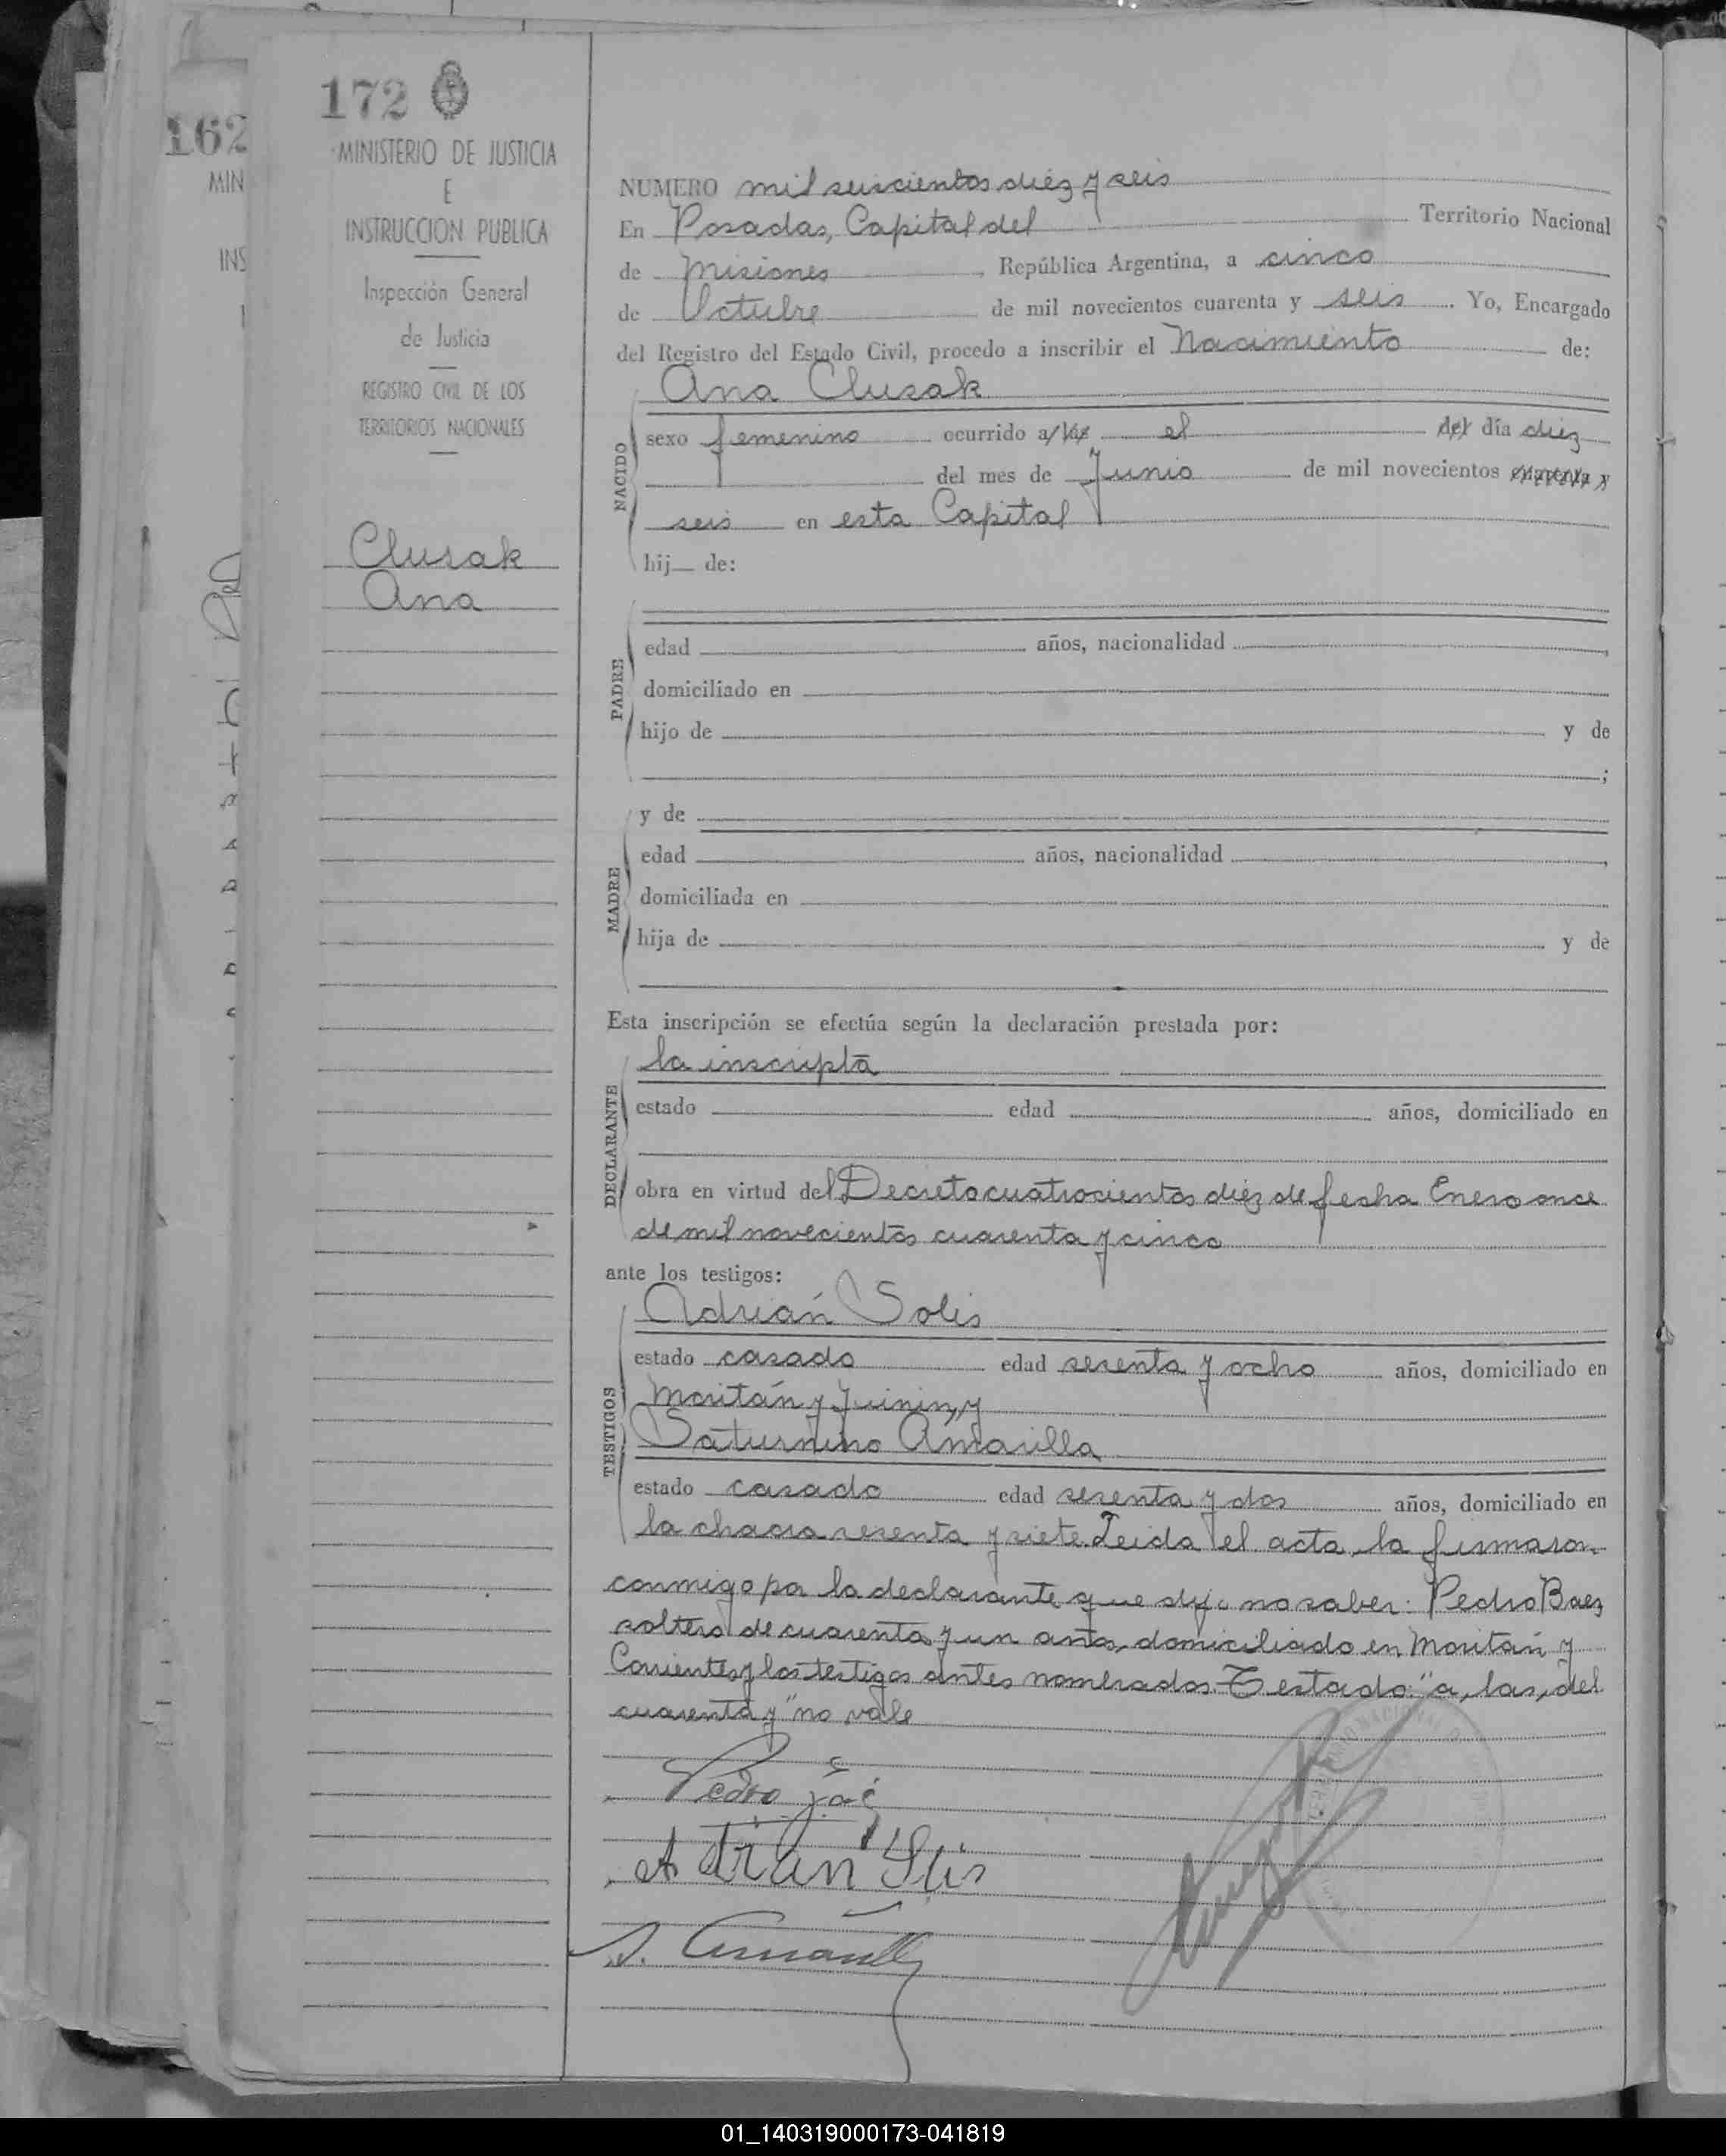 172
162
MINISTERIO DE JUSTICIA
E
INSTRUCCION PUBLICA
Inspección General
de Justicia
REGISTRO CIVIL DE LOS
TERRITORIOS NACIONALES
MIN
INS
Clusak
Ana
NUMERO mil seiscientos diez y seis
En Posadas, Capital del Territorio Nacional
de Misiones, República Argentina, a cinco
de Octubre de mil novecientos cuarenta y seis. Yo, Encargado
del Registro del Estado Civil, procedo a inscribir el Nacimiento de:
Ana Clusak
NACIDO
sexo femenino ocurrido a las el del día diez
del mes de Junio de mil novecientos cuarenta y
seis en esta Capital
hij de:
PADRE
edad años, nacionalidad ,
domiciliado en
hijo de y de
;
MADRE
y de
edad años, nacionalidad ,
domiciliada en
hija de y de
Esta inscripción se efectúa según la declaración prestada por:
DECLARANTE
la inscripta
estado edad años, domiciliado en
obra en virtud del Decreto cuatrocientos diez de fecha Enero once
de mil novecientos cuarenta y cinco
ante los testigos:
TESTIGOS
Adrián Solis
estado casado edad sesenta y ocho años, domiciliado en
Moritán y Juinin, y
Saturnino Amarilla
estado casado edad sesenta y dos años, domiciliado en
la chacra sesenta y siete. Leida el acta, la firmaron
conmigo por la declarante que dijo no saber: Pedro Baez
soltero de cuarenta y un años, domiciliado en Moritán y
Corrientes y los testigos antes nombrados. Testado: "a, las, del
cuarenta y" no vale
Pedro
Adrian Solis
S. Amarilla
01_140319000173-041819